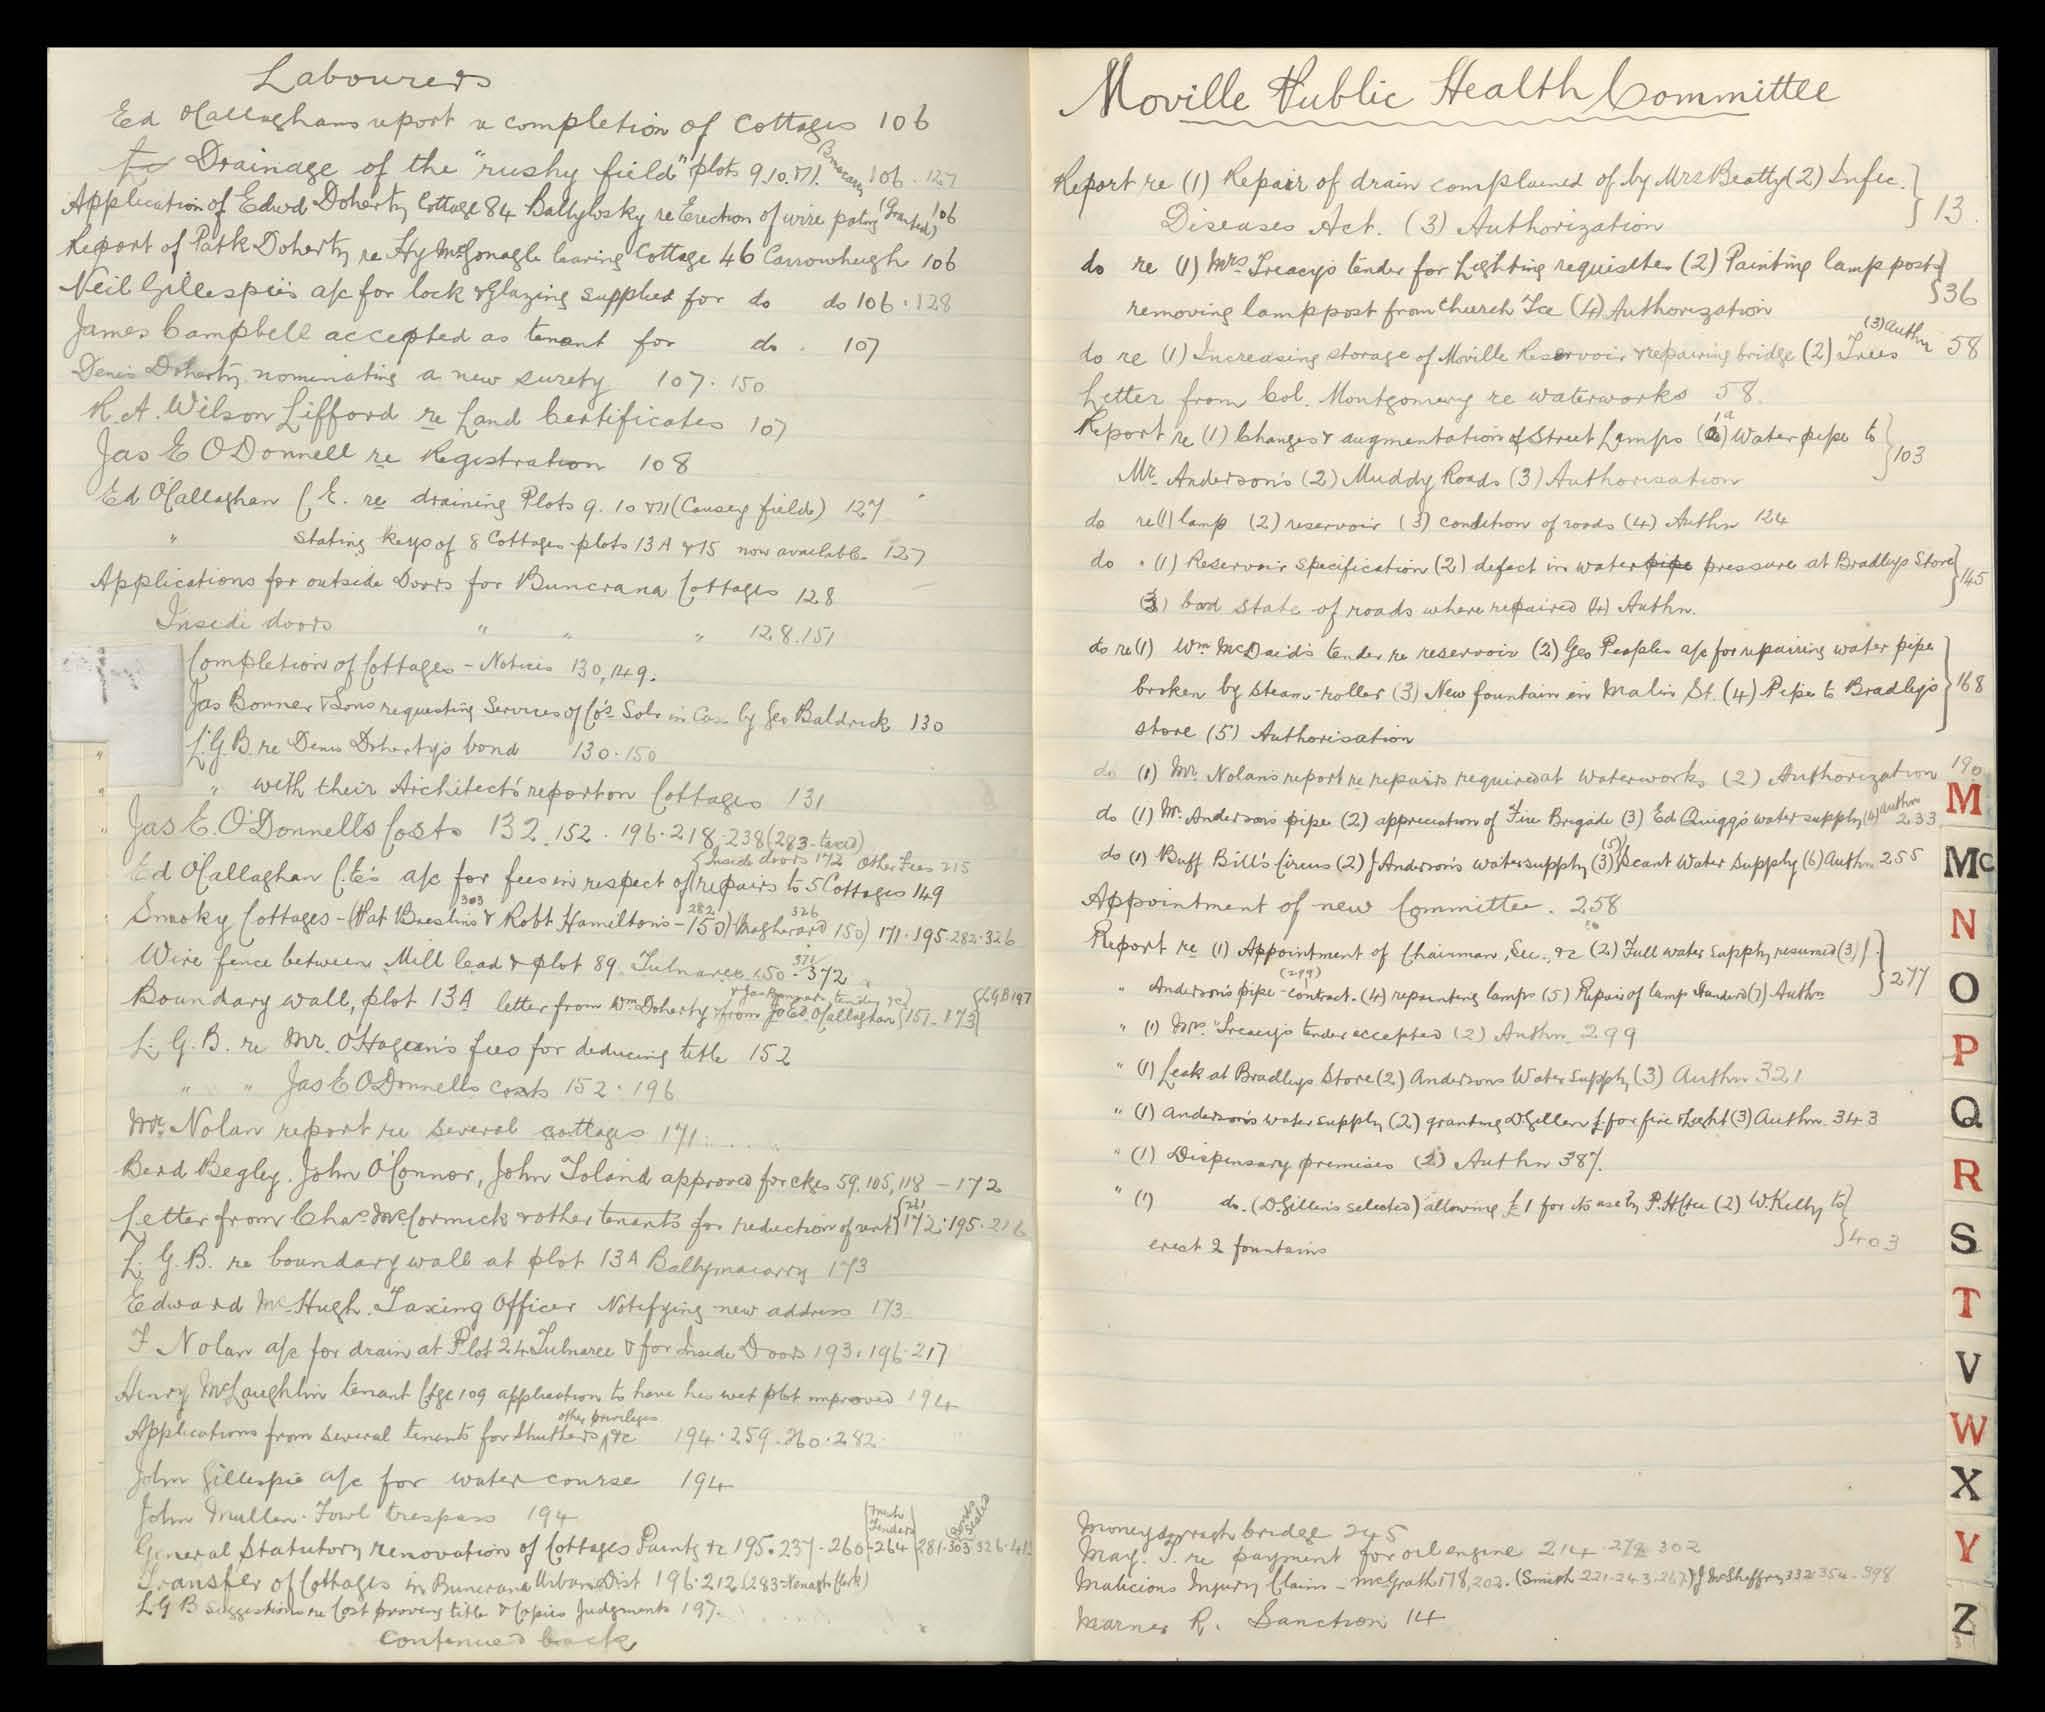 Labourers
Ed O'Callaghans report re completion of Cottages 106
Drainage of the "rushy field" plots 9.10.&11. Buncrana 106.127
Application of Edwd Doherty Cottage 84 Ballylosky re Erection of wire paling (Granted) 106
Report of Patk Doherty re Hy McGonagle leaving Cottage 46 Carrowhugh 106
Neil Gillespie's a/c for lock & glazing supplied for do do 106.128
James Campbell accepted as tenant for do. 107
Denis Doherty nominating a new surety 107.150
R.A. Wilson Lifford re Land Certificates 107
Jas E O'Donnell re Registration 108
Ed O'Callaghan C.E. re draining Plots 9.10&11 (Causey field) 127
" stating keys of 8 Cottages plots 13A & 15 now available 127
Applications for outside Doors for Buncrana Cottages 128
Inside doors " " " 128.151
Completion of Cottages - Notices 130,149.
Jas Bonner & Sons requesting Services of Co's Solr in Case by Geo Baldrick 130
L.G.B. re Denis Doherty's bond 130.150
" with their Architect's report on Cottages 131
Jas E. O'Donnells Costs 132.152.196.218.238 (283-taxed)
(Inside doors 172 Other Fees 215
Ed O'Callaghan C.E's a/c for fees in respect of repairs to 5 Cottages 149
Smoky Cottages - (Pat Breslin's 303 & Robt Hamilton's - 150) 282 (Magherard 150) 326 171.195.282.326
Wire fence between Mill lead & plot 89 Tulnaree 150.371 372
Boundary wall, plot 13A letter from Wm Doherty & from Ed. O'Callaghan 151-173 (LGB 197
L.G.B. re Mr. O'Hagan's fees for deducing title 152
" " Jas E O'Donnells costs 152.196
Mr. Nolan report re several cottages 171
Berd Begley. John O'Connor, John Toland approved for ctges 59,105,118 - 172
Letter from Chas McCormick & other tenants for reduction of rent (221 172.195.216
L.G.B. re boundary wall at plot 13A Ballymacarry 173
Edward McHugh. Taxing Officer Notifying new address 173
F Nolan a/c for drain at Plot 24 Tulnaree & for Inside Doors 193.196.217
Henry McLaughlin tenant Ctge 109 application to have his wet plot improved 194
Applications from several tenants for Shutters other privileges &c 194.259.260.282
John Gillespie a/c for water course 194
John Mullen. Fowl trespass 194
General Statutory renovation of Cottages Paints &c 195.237.260 -264 281.303 326.
Transfer of Cottages in Buncrana Urban Dist 196.212 (283-
L G B suggestions re Cost proving title & Copies Judgments 197.
continued back
Moville Public Health Committee
Report re (1) Repair of drain complained of by Mrs Beatty (2) Infec.
Diseases Act. (3) Authorization } 13.
do re (1) Mrs Treacy's tender for Lighting requisites (2) Painting lamp posts
removing lamppost from Church Tce (4) Authorization } 36
do re (1) Increasing storage of Moville Reservoir & repairing bridge (2) Trees (3) Authn 58
Letter from Col. Montgomery re waterworks 58.
Report re (1) Changes & augmentation of Street Lamps (1a) Water pipe to
Mr. Anderson's (2) Muddy Roads (3) Authorisation } 103
do re (1) lamp (2) reservoir (3) condition of roads (4) Authn 124
do " (1) Reservoir Specification (2) defect in water pipe pressure at Bradleys Store
(3) bad state of roads where repaired (4) Authn. } 145
do re (1) Wm McDaid's tender re reservoir (2) Geo Peoples a/c for repairing water pipe
broken by steam-roller (3) New fountain in Malin St. (4) Pipe to Bradley's
store (5) Authorisation } 168
do (1) Mr. Nolan's report re repairs required at Waterworks (2) Authorization 190
do (1) Mr. Anderson's pipe (2) appreciation of Fire Brigade (3) Ed Quigg's water supply (4) authn 233
do (1) Buff Bill's Circus (2) J Anderson's water supply (3) (5) Scant Water Supply (6) Authn 255
Appointment of new Committee. 258
Report re (1) Appointment of Chairman, Sec., &c (2) Full water supply resumed (3) J.
" Anderson's pipe - contract. (299) (4) repainting lamps (5) Repair of lamp standard (7) Authn } 277
" (1) Mrs. Treacy's tender accepted (2) Authn. 299
" (1) Leak at Bradleys Store (2) Andersons Water Supply (3) Authn 321
" (1) Anderson's water supply (2) granting D Gillen £ for fire & light (3) Authn. 343
" (1) Dispensary premises (2) Authn 387.
" (1) do. (D Gillen's selected) allowing £1 for its use by P.H. Ctee (2) W. Kelly to
erect 2 fountains } 403
Moneydarragh bridge 245
May. T. re payment for oil engine 214.278 302
Malicious Injury Claims - McGrath 178,202. (Smith 221.243.267) J McSheffrey 332.354.398
Marner R. Sanction 14
M
Mc
N
O
P
Q
R
S
T
V
W
X
Y
Z